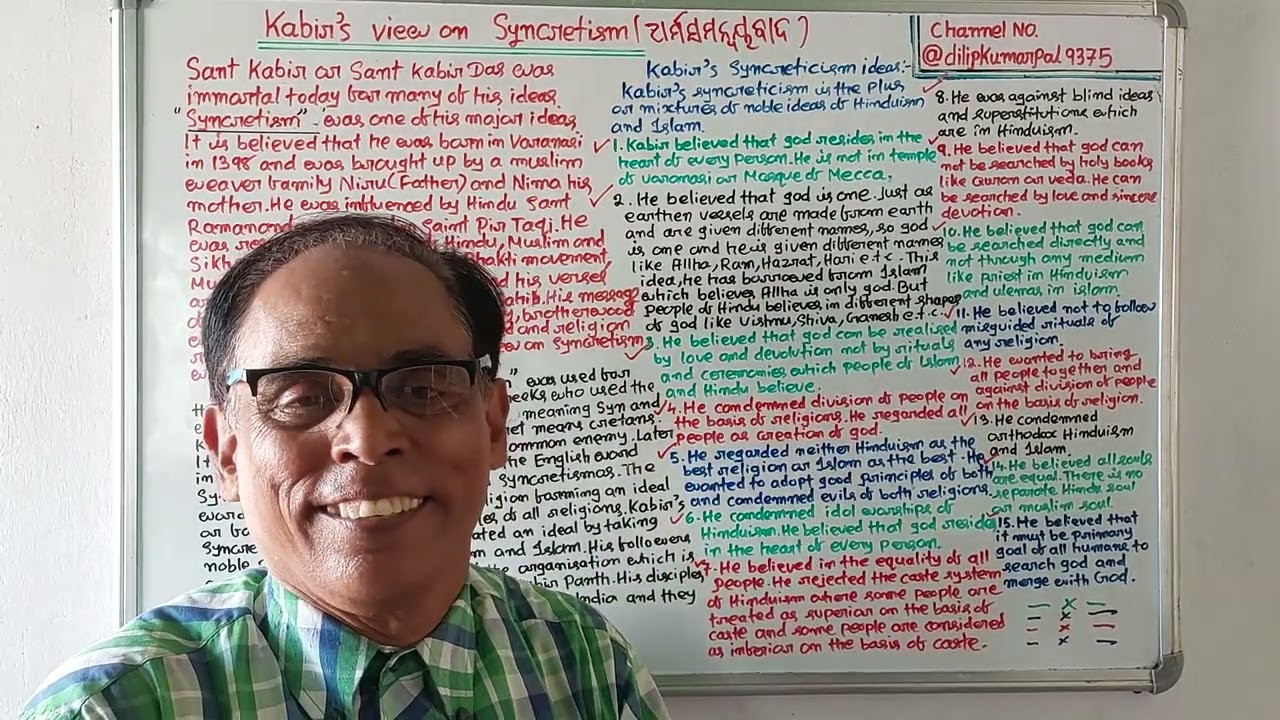 Kabir's view on Syncretism (ଧର୍ମସମନ୍ୱୟବାଦ)
Channel NO.
@dilipkumarpal9375
Sant Kabir or Sant Kabir Das was
immortal today for many of his ideas.
"Syncretism" was one of his major ideas.
It is believed that he was born in Varanasi
in 1398 and was brought up by a muslim
weaver family Niru (Father) and Nima his
mother. He was influenced by Hindu Sant
Ramanand Saint Pir Taqi. He
was Hindu, Muslim and
Sikh Bhakti movement,
and his verses
Sahib. His message
brotherwood
and religion
on Syncretism
was used for
Greeks who used the
meaning Syn and
means cretans.
common enemy. Later
the English word
Syncretismas. The
religion forming an ideal
of all religions. Kabir's
created an ideal by taking
and Islam. His followers
the organisation which is
Kabir Panth. His disciples
India and they
Syncre
noble
Kabir's Syncreticism ideas:-
Kabir's syncreticism is the plus
or mixtures of noble ideas of Hinduism
and Islam.
1. Kabir believed that god resides in the
heart of every person. He is not in temple
of varanasi or Mosque of Mecca.
2. He believed that god is one. Just as
earthen vessels are made from earth
and are given different names, so god
is one and he is given different names
like Allha, Ram, Hazrat, Hari e.t.c. This
idea, he has borrowed from Islam
which believes Allha is only god. But
people of Hindu believes in different shapes
of god like Vishnu, Shiva, Ganesh e.t.c.
3. He believed that god can be realised
by love and devolution not by rituals
and ceremonies which people of Islam
and Hindu believe.
4. He condemned division of people on
the basis of religions. He regarded all
people as creation of god.
5. He regarded neither Hinduism as the
best religion or Islam as the best. He
wanted to adopt good principles of both
and condemned evils of both religions.
6. He condemned idol worships of
Hinduism. He believed that god resides
in the heart of every person.
7. He believed in the equality of all
people. He rejected the caste system
of Hinduism where some people are
treated as superior on the basis of
caste and some people are considered
as inferior on the basis of caste.
8. He was against blind ideas
and superstitutions which
are in Hinduism.
9. He believed that god can
not be searched by holy books
like Quran or veda. He can
be searched by love and sincere
devotion.
10. He believed that god can
be searched directly and
not through any medium
like priest in Hinduism
and ulemas in islam.
11. He believed not to follow
misguided rituals of
any religion.
12. He wanted to bring
all people together and
against division of people
on the basis of religion.
13. He condemned
orthodox Hinduism
and Islam.
14. He believed all souls
are equal. There is no
separate Hindu soul
or muslim soul.
15. He believed that
it must be primary
goal of all humans to
search god and
merge with God.